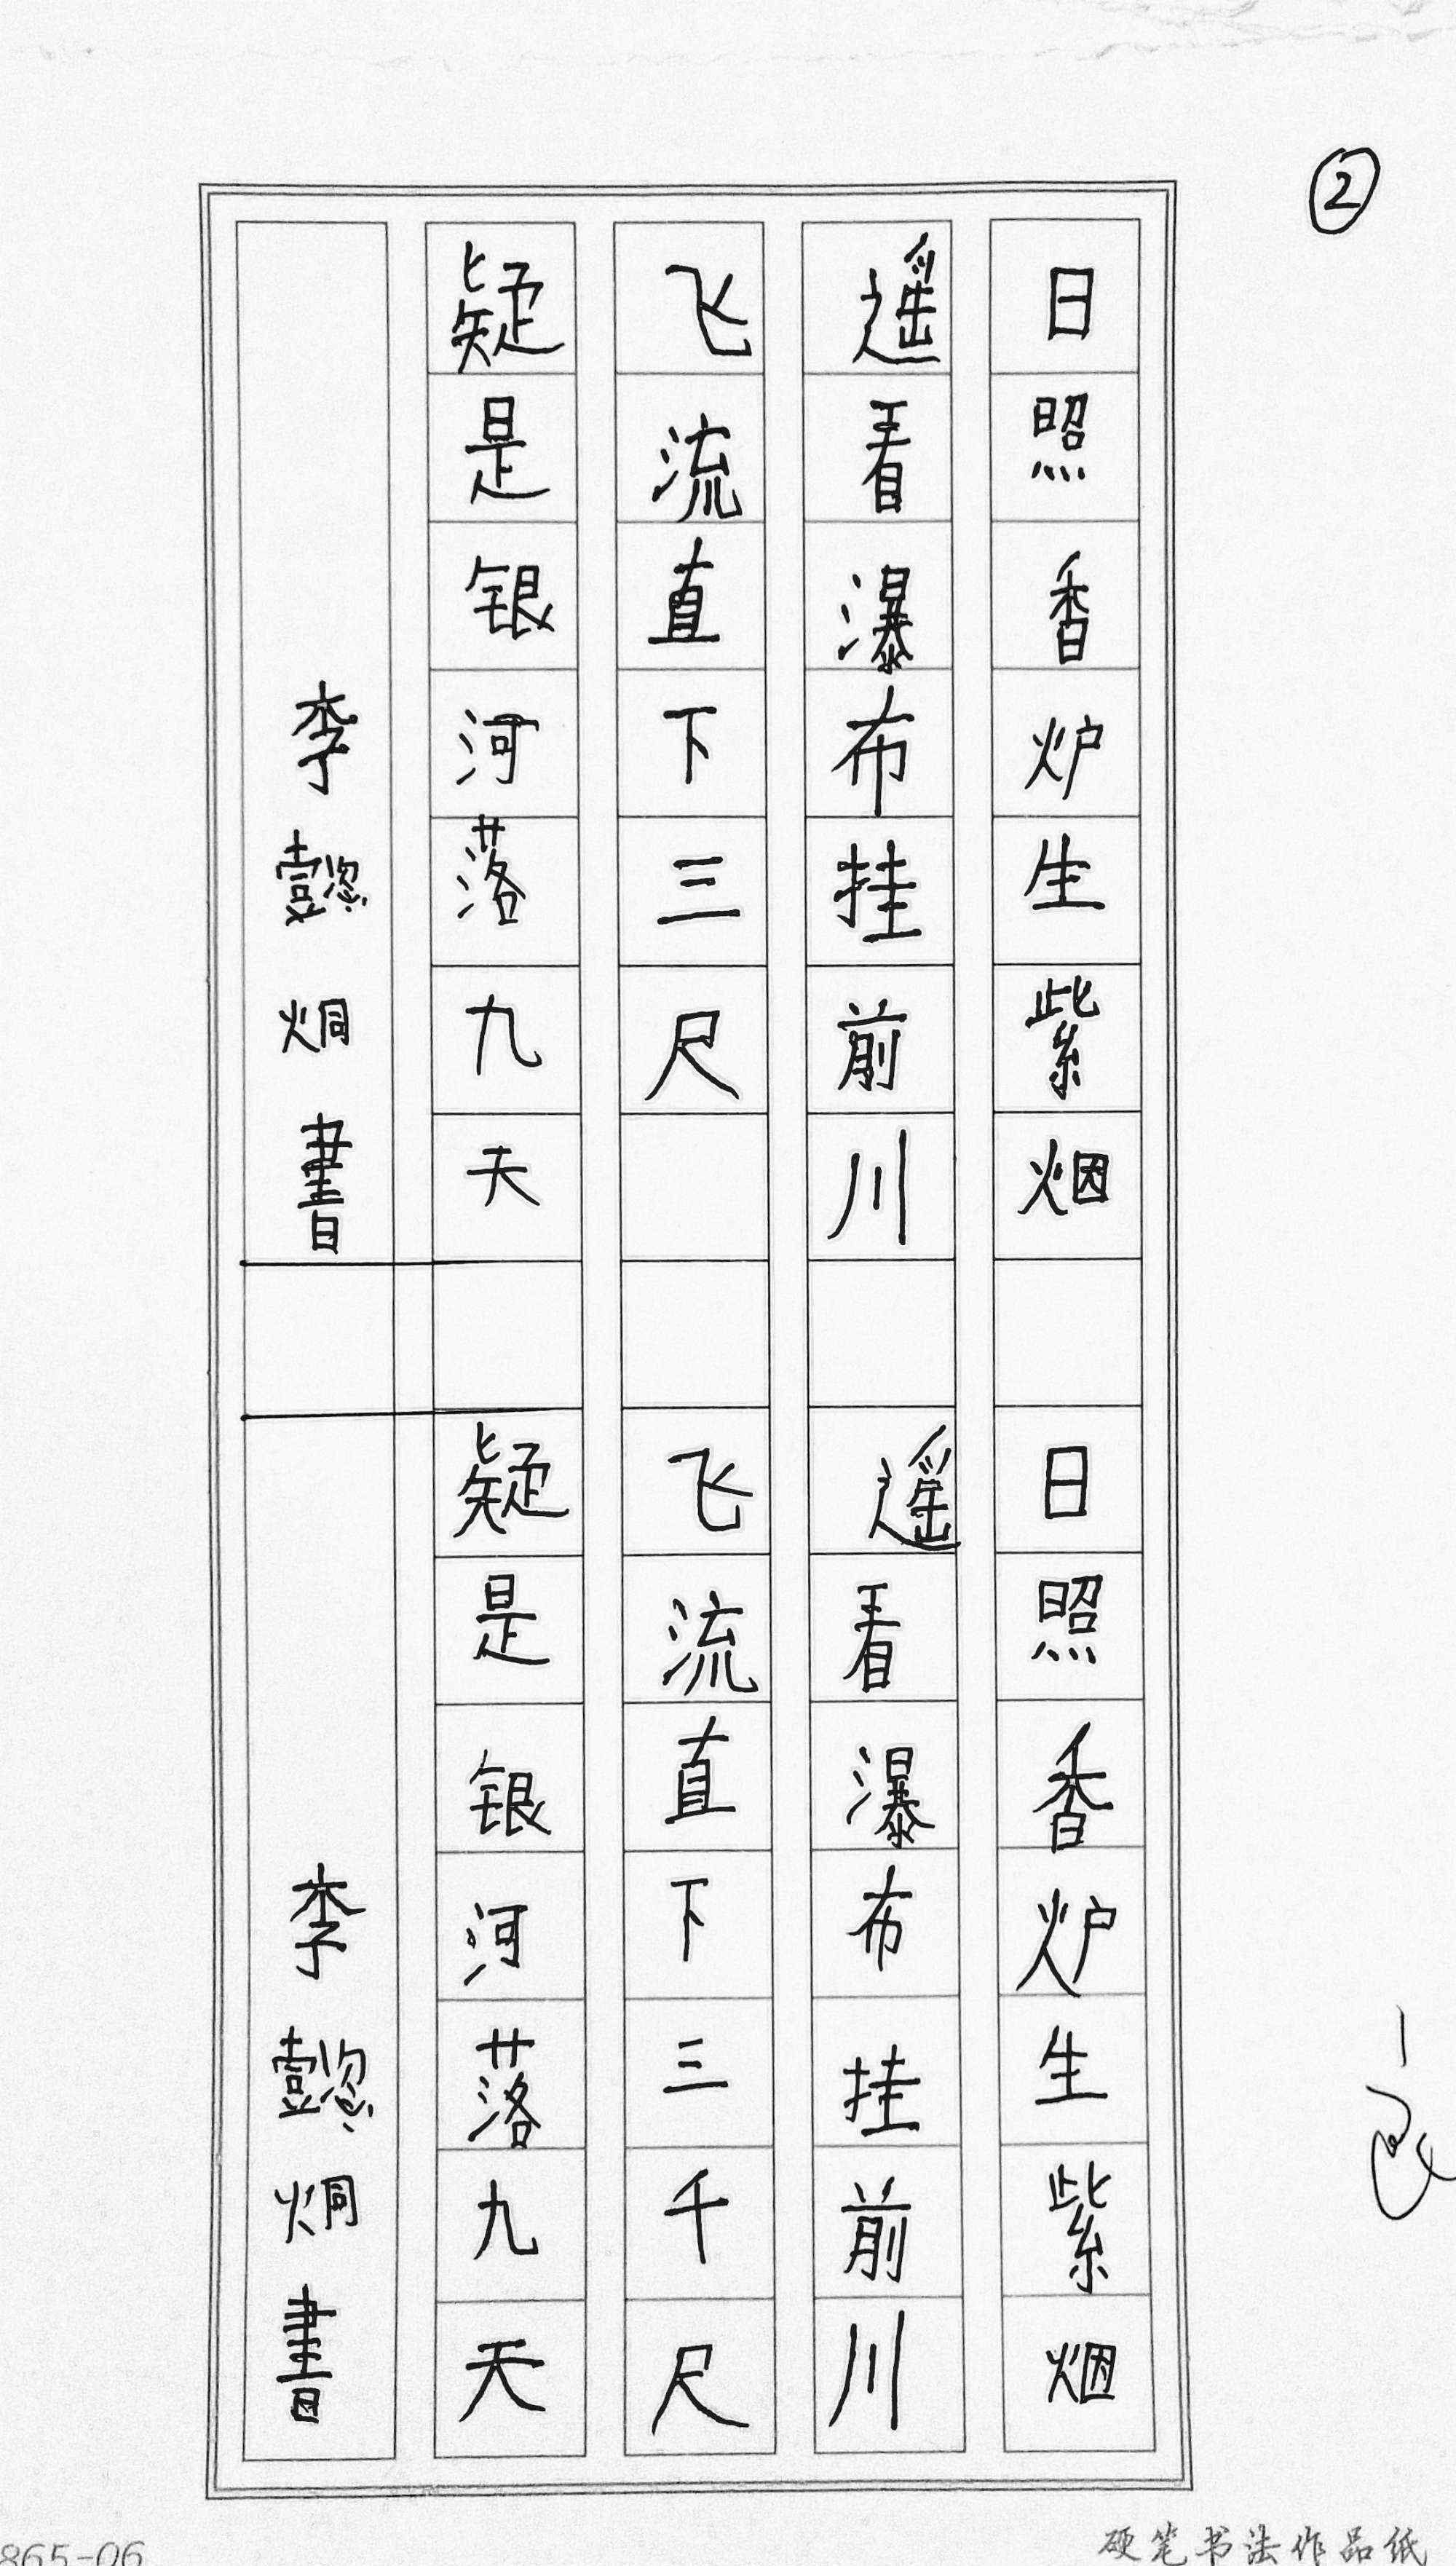 ②
日照香炉生紫烟
遥看瀑布挂前川
飞流直下三尺
疑是银河落九天
李懿炯書
日照香炉生紫烟
遥看瀑布挂前川
飞流直下三千尺
疑是银河落九天
李懿炯書
865-06
硬笔书法作品纸